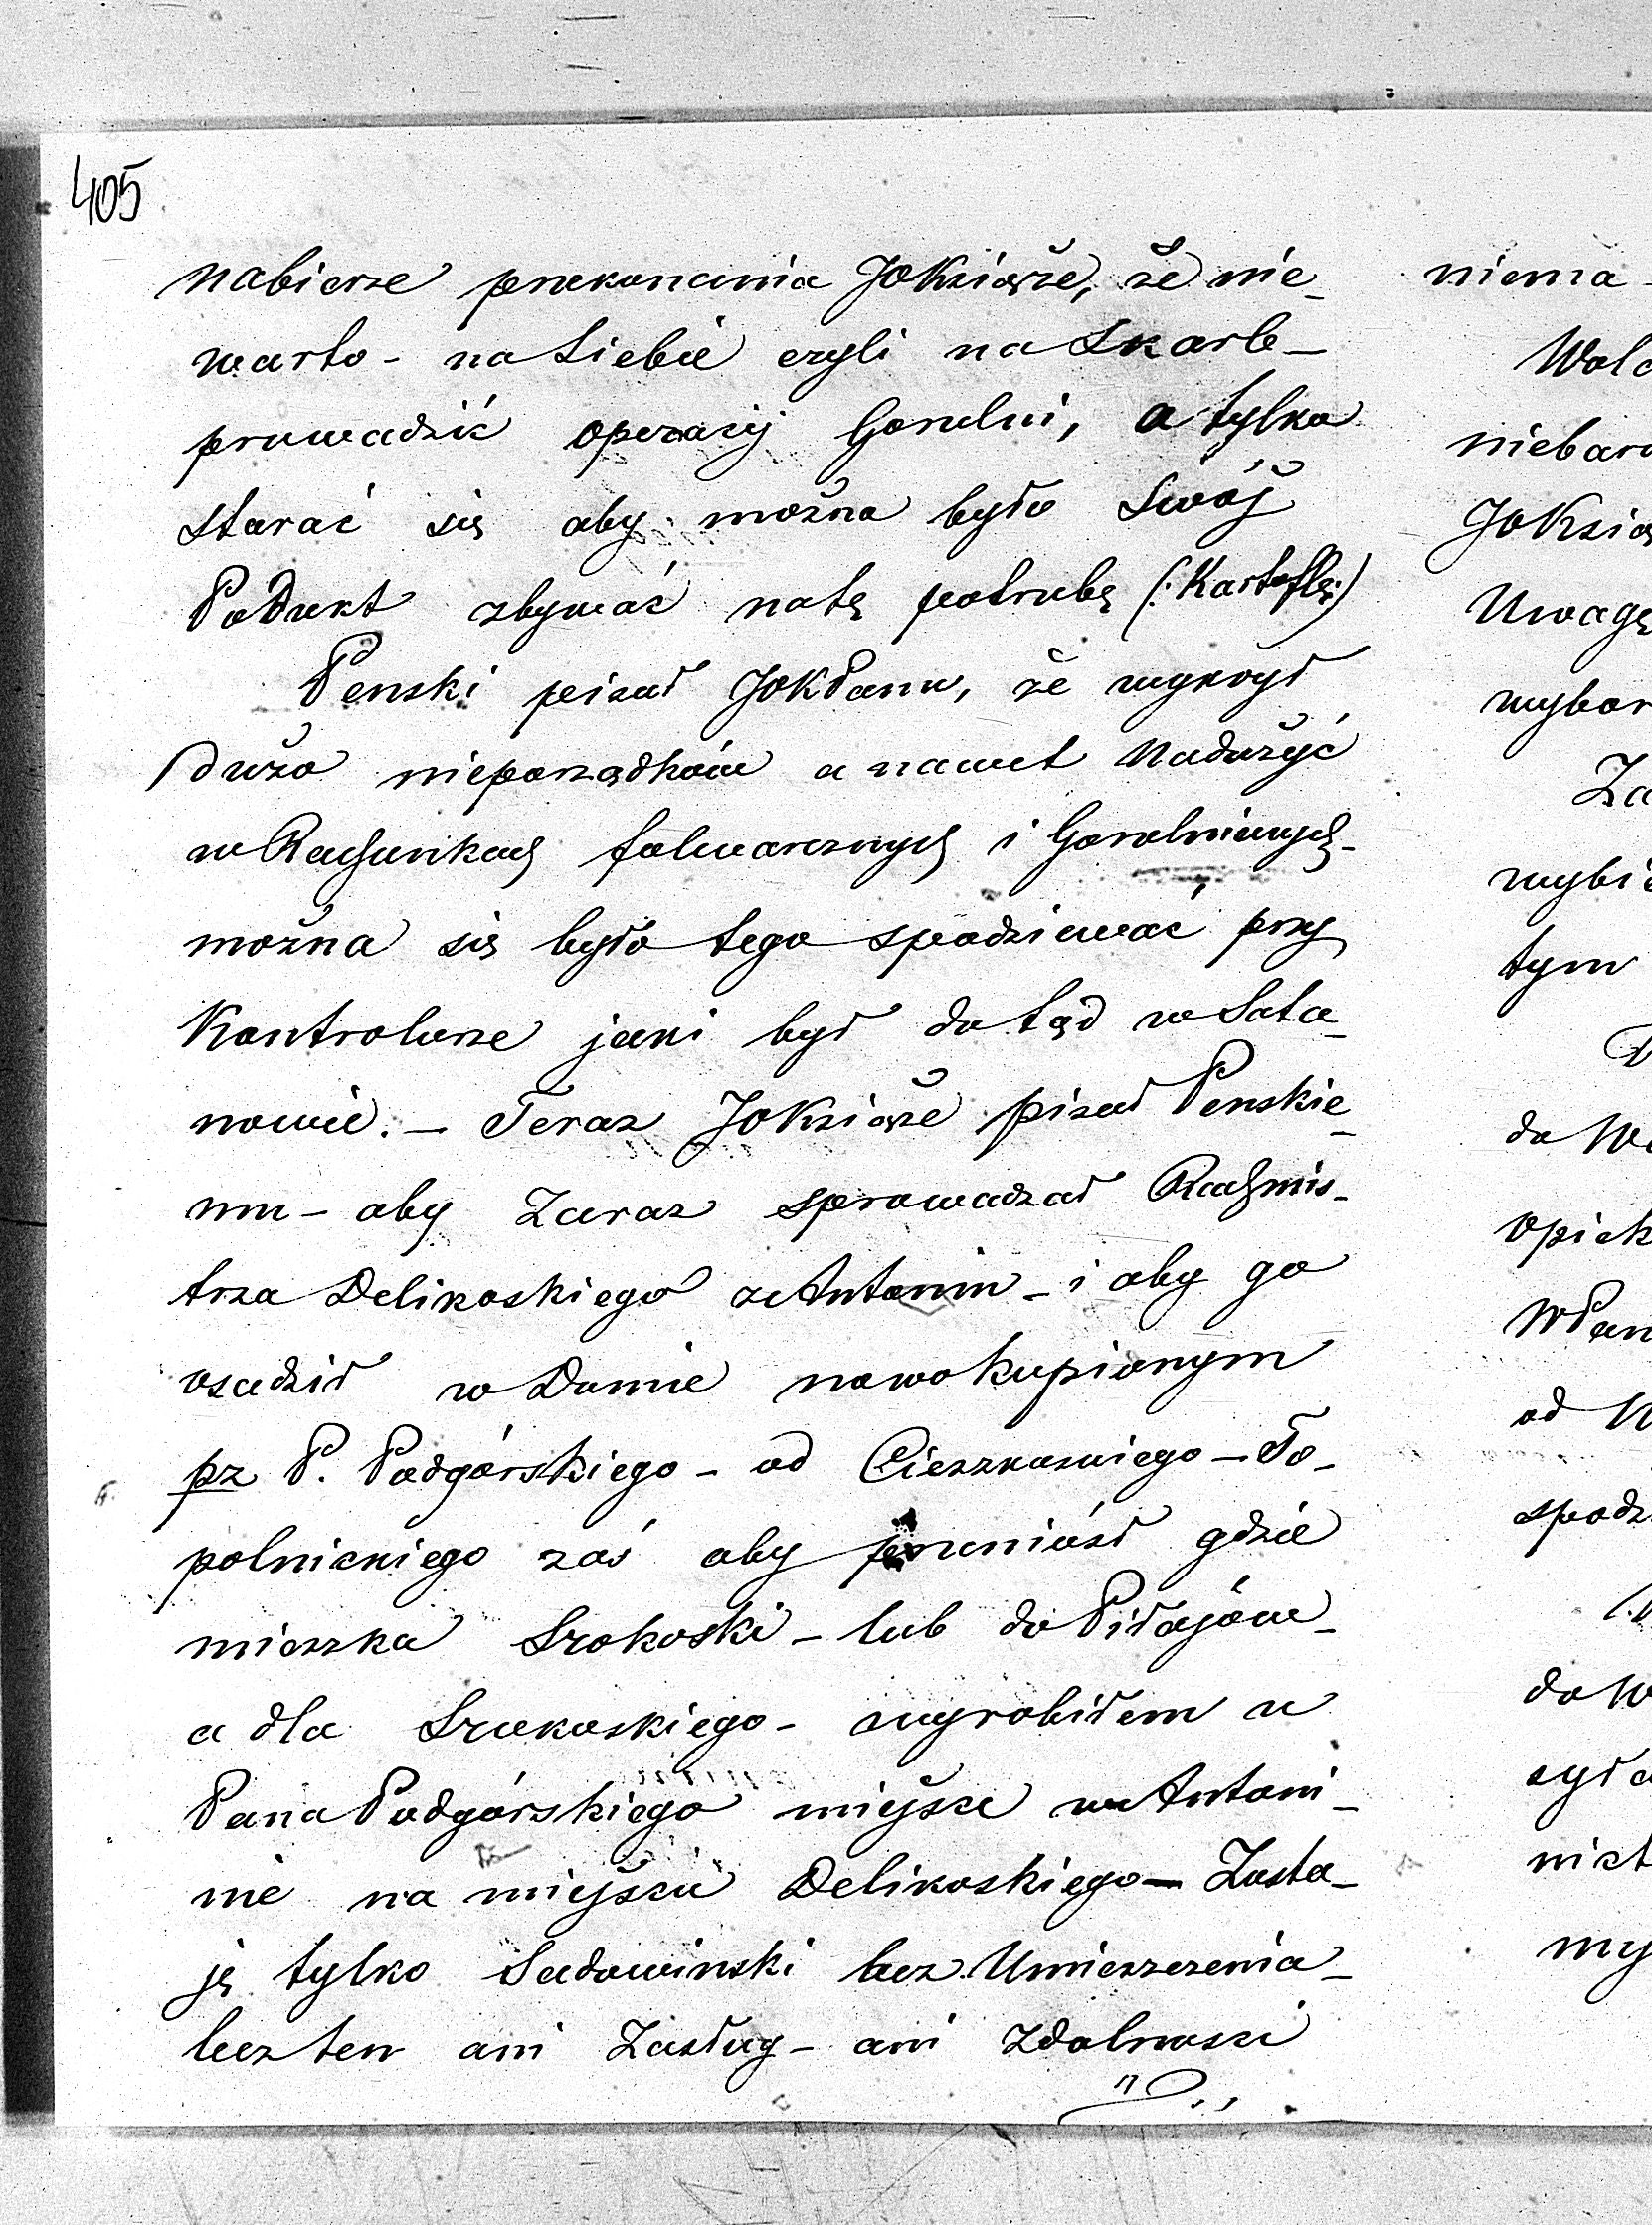 405
nabierze przekonania JOKsiąże, że nie_
warto - na Siebie czyli na Skarb_
prowadzić operacij Gorzelni, a tylko
starać się aby można było Swój
Podukt zbywać natę potrzebę (: Kartoflę:)
Penski pisał JOKPanu, że wykrył
dużo nieporządków a nawet Nadużyć
w Rachunkach folwarcznych i Gorzelnianych_
można się było tego spodziewać przy
Kontrolerze jaki był do tąd w Sata_
nowie. _ Teraz JOKsiąże pisał Penskie_
mu - aby Zaraz sprowadzał Rachmis_
trza Delikoskiego z Antonin - i aby go
osadził w Domie nowokupionym
pz P. Podgórskiego - od Cieszkoskiego - To_
polnickiego zaś aby przeniósł gdzie
mieszka Srokoski - lub do Pisajów_
a dla Srokoskiego - wyrobiłem u
Pana Podgórskiego miejsce w Antoni_
nie na miejscu Delikoskiego - Zosta_
ję tylko Sadowinski bez Umieszczenia_
lecz ten ani Zasług - ani Zdolnosci
niema -
niebar
JOKsią
Uwagę
wybor
Za
wybi
tym
do W
opiek
WPan
od
spodz
do W
my